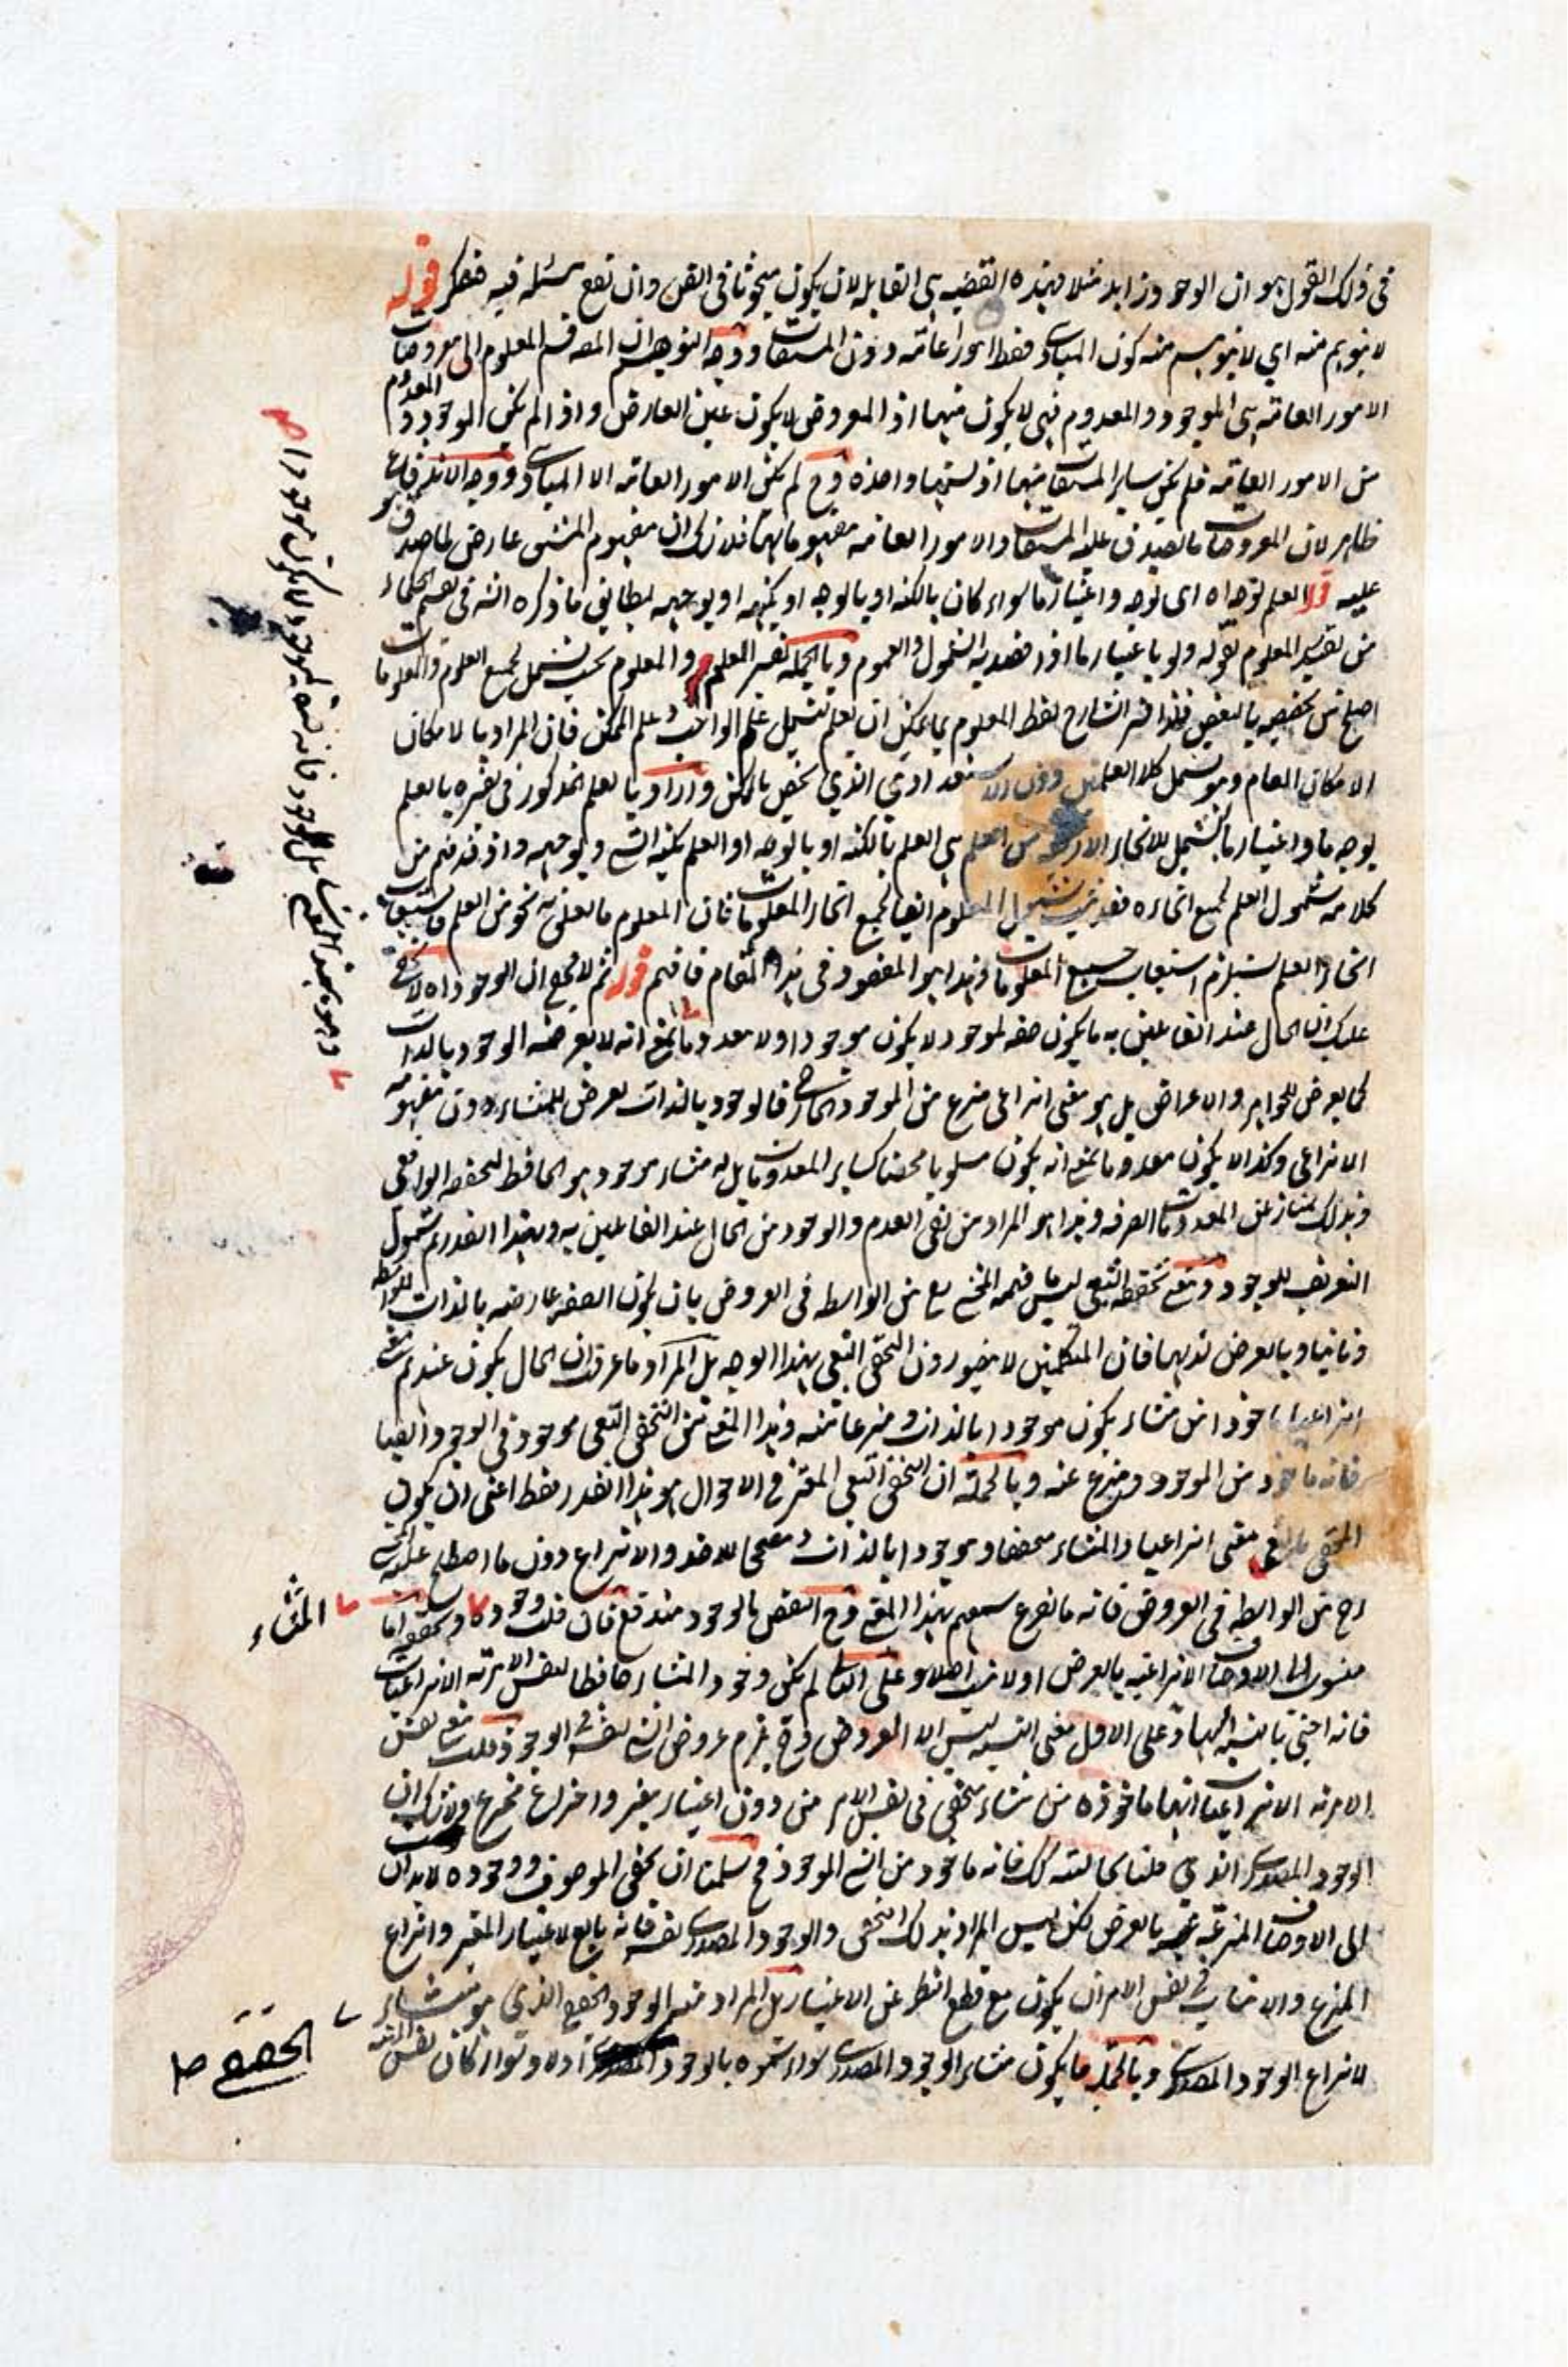 في ذلك القول هو ان الوجود زايد مثلا فهذه القضيه هي القابله لان يكون مبحوثا في الفن وان تقع مسئله فيه فتفكر قوله
لا يتوهم منه اي لا يتوهم منه كون المبادي فقط امورا عامه دون المشتقات ووجه التوهم ان المصـ قسم المعلوم الى معروضات
الامور العامه هي الموجود والمعدوم فهي لا يكون منها اذ المعروض لا يكون عين العارض واذا لم يكن الموجود والمعدوم
من الامور العامه فلم يكن ساير المشتقات منها اذ نسبتها واحده وح لم يكن الامور العامه الا المبادي ووجه الاندفاع
ظاهر لان المعروضات ما يصدق عليه المشتقات والامور العامه مفهوماتها فلا شك ان مفهوم المشتق عارض لما صدق هو
عليه قوله العلم بوجه اه اي بوجه واعتبار ما سواء كان بالكنه او بالوجه او بكنهه او بوجهه ليطابق ما ذكره انه في تقسيم الحكماء
من تفسير المعلوم بقوله ولو باعتبار ما اذ قصد به الشمول والعموم وبالجمله تفسير العلم والمعلوم بحيث يشمل لجميع العلوم والمعلومات
اصلح من تخصيصه بالبعض فلذا فسر الشارح لفظ المعلوم بما يمكن ان يعلم ليشمل علم الواجب وعلم الممكن فان المراد بالامكان
الامكان العام وهو يشمل كلا العلمين دون الاستعدادي الذي يختص بالممكن واراد بالعلم المذكور في تفسيره بالعلم
بوجه ما واعتبار ما ليشمل للانحاء الاربعة من العلم هي العلم بالكنه او بالوجه او العلم بكنه الشي وبوجهه واذ قد فهم من
كلامه شمول العلم لجميع انحاءه فقد ثبت شمول المعلوم ايضا لجميع انحاء المعلومات فان المعلوم ما تعلق به نحو من العلم فاستيعاب
انحاء العلم يستلزم استيعاب جميع المعلومات وهذا هو المقصود في هذا المقام فافهم قوله ثم لا يخفى ان الوجود اه لا يخفى
عليك ان الحال عند القائلين به ما يكون صفه لموجود لا يكون موجودا ولا معدوما بمعنى انه لا يعرضه الوجود بالذات
كما يعرض للجواهر والاعراض بل هو معنى انتزاعي منتزع من الموجود الخارجي فالوجود بالذات يعرض للمنشاء دون مفهومه
الانتزاعي وكذا لا يكون معدوما بمعنى انه يكون مسلوبا محضا كساير المعدومات بل له منشاء موجود هو الحافظ لتحققه الواقعي
وبذلك يمتاز عن المعدومات الصرفه وهذا هو المراد من نفي العدم والوجود من الحال عند القائلين به وبهذا القدر يتم شمول
التعريف للوجود ومعنى تحققه التبعي ليس فيهم المعنى من الواسطه في العروض بان يكون الصفه عارضه بالذات للواسطه
وثانيا وبالعرض لذيها فان المتكلمين لا يتصورون التحقق التبعي بهذا الوجه بل المراد ما عرفت ان الحال يكون عندهم معنى
انتزاعيا ماخوذا من منشاء يكون موجودا بالذات ومنتزعا منه وهذا المعنى من التحقق التبعي موجود في الوجود ايضا
فانه ماخوذ من الموجود ومنتزع عنه وبالجمله ان التحقق التبعي المعتبر في الاحوال هو هذا القدر فقط اعني ان يكون
المتحقق بالتبع معنى انتزاعيا والمنشاء متحققا وموجودا بالذات ومصححا للاخذ والانتزاع دون ما اصطلح عليه
من الواسطه في العروض فانه ما تفرع سمعهم بهذا المعنى وح النقض بالوجود مندفع فان قلت وجوده وتحققه اما
منسوب الى الاوصاف الانتزاعيه بالعرض اولا ينسب اصلا وعلى الثاني لم يكن وجود المنشاء حافظا لنفس الامريه الانتزاعيات
فانه اجنبي بالنسبة اليها وعلى الاول معنى النسبه ليس الا العروض وح يلزم عروض الشي لنفسه في الوجود قلت معنى نفس
الامريه الانتزاعيات انها ماخوذه من منشاء متحقق في نفس الامر من دون اعتبار معتبر واختراع مخترع ولا شك ان
الوجود المصدري الذي قلنا بحاليته كك فانه ماخوذ من الشي الموجود فح سلمنا ان تحقق الموصوف ووجوده لا بد ان
الى الاوصاف المنتزعه بالعرض لكن ليس المراد بذلك التحقق والوجود المصدري نفسه فانه تابع لاعتبار المعتبر وانتزاع
المنتزع والانتساب في نفس الامر ان يكون مع قطع النظر عن الاعتبار بل المراد منه الوجود الحقيقي الذي هو منشاء
لانتزاع الوجود المصدري وبالجمله ما يكون منشاء الوجود المصدري سواء سموه بالوجود اولا وسواء كان نفس
المنشاء
الحقيقي صـ